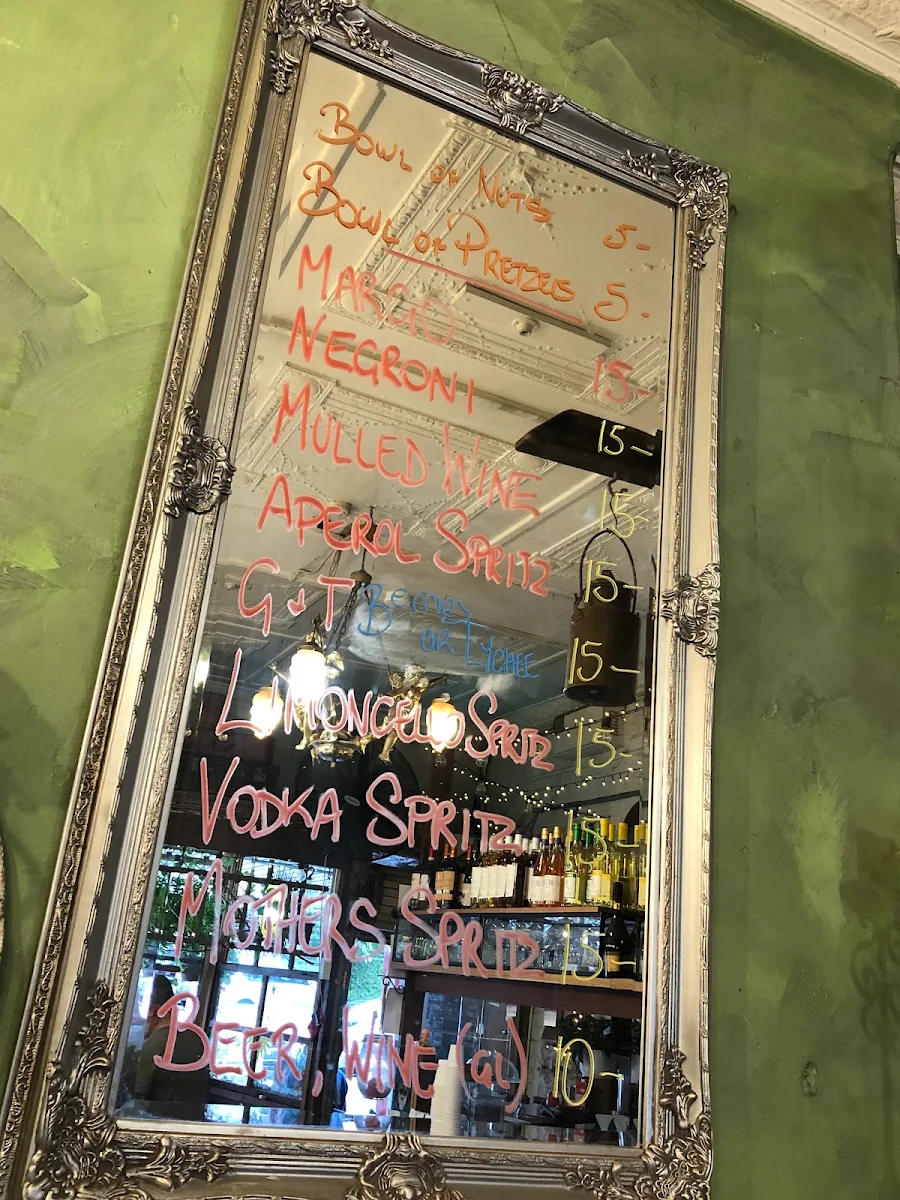 Bowl of Nuts 5-
Bowl of Pretzels 5-
Margo 15-
Negroni 15-
Mulled Wine 15-
Aperol Spritz 15-
G & T Berries or Lychee 15-
Limoncello Spritz 15-
Vodka Spritz 15-
Mothers Spritz 15-
Beer, Wine (Gl) 10-